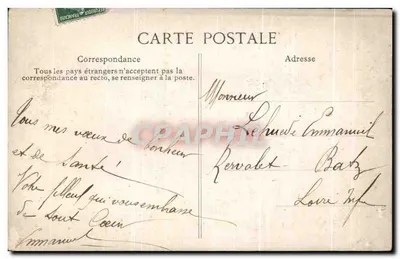 CARTE POSTALE
Correspondance
Tous les pays étrangers n'acceptent pas la
correspondance au recto, se renseigner à la poste.
Adresse
Tous mes vœux de bonheur
et de santé!
Votre filleul qui vous embrasse
de tout Cœur
Emmanuel
Monsieur
Lehuédé Emmanuel
Kervalet Batz
Loire Infre
CPARAMA